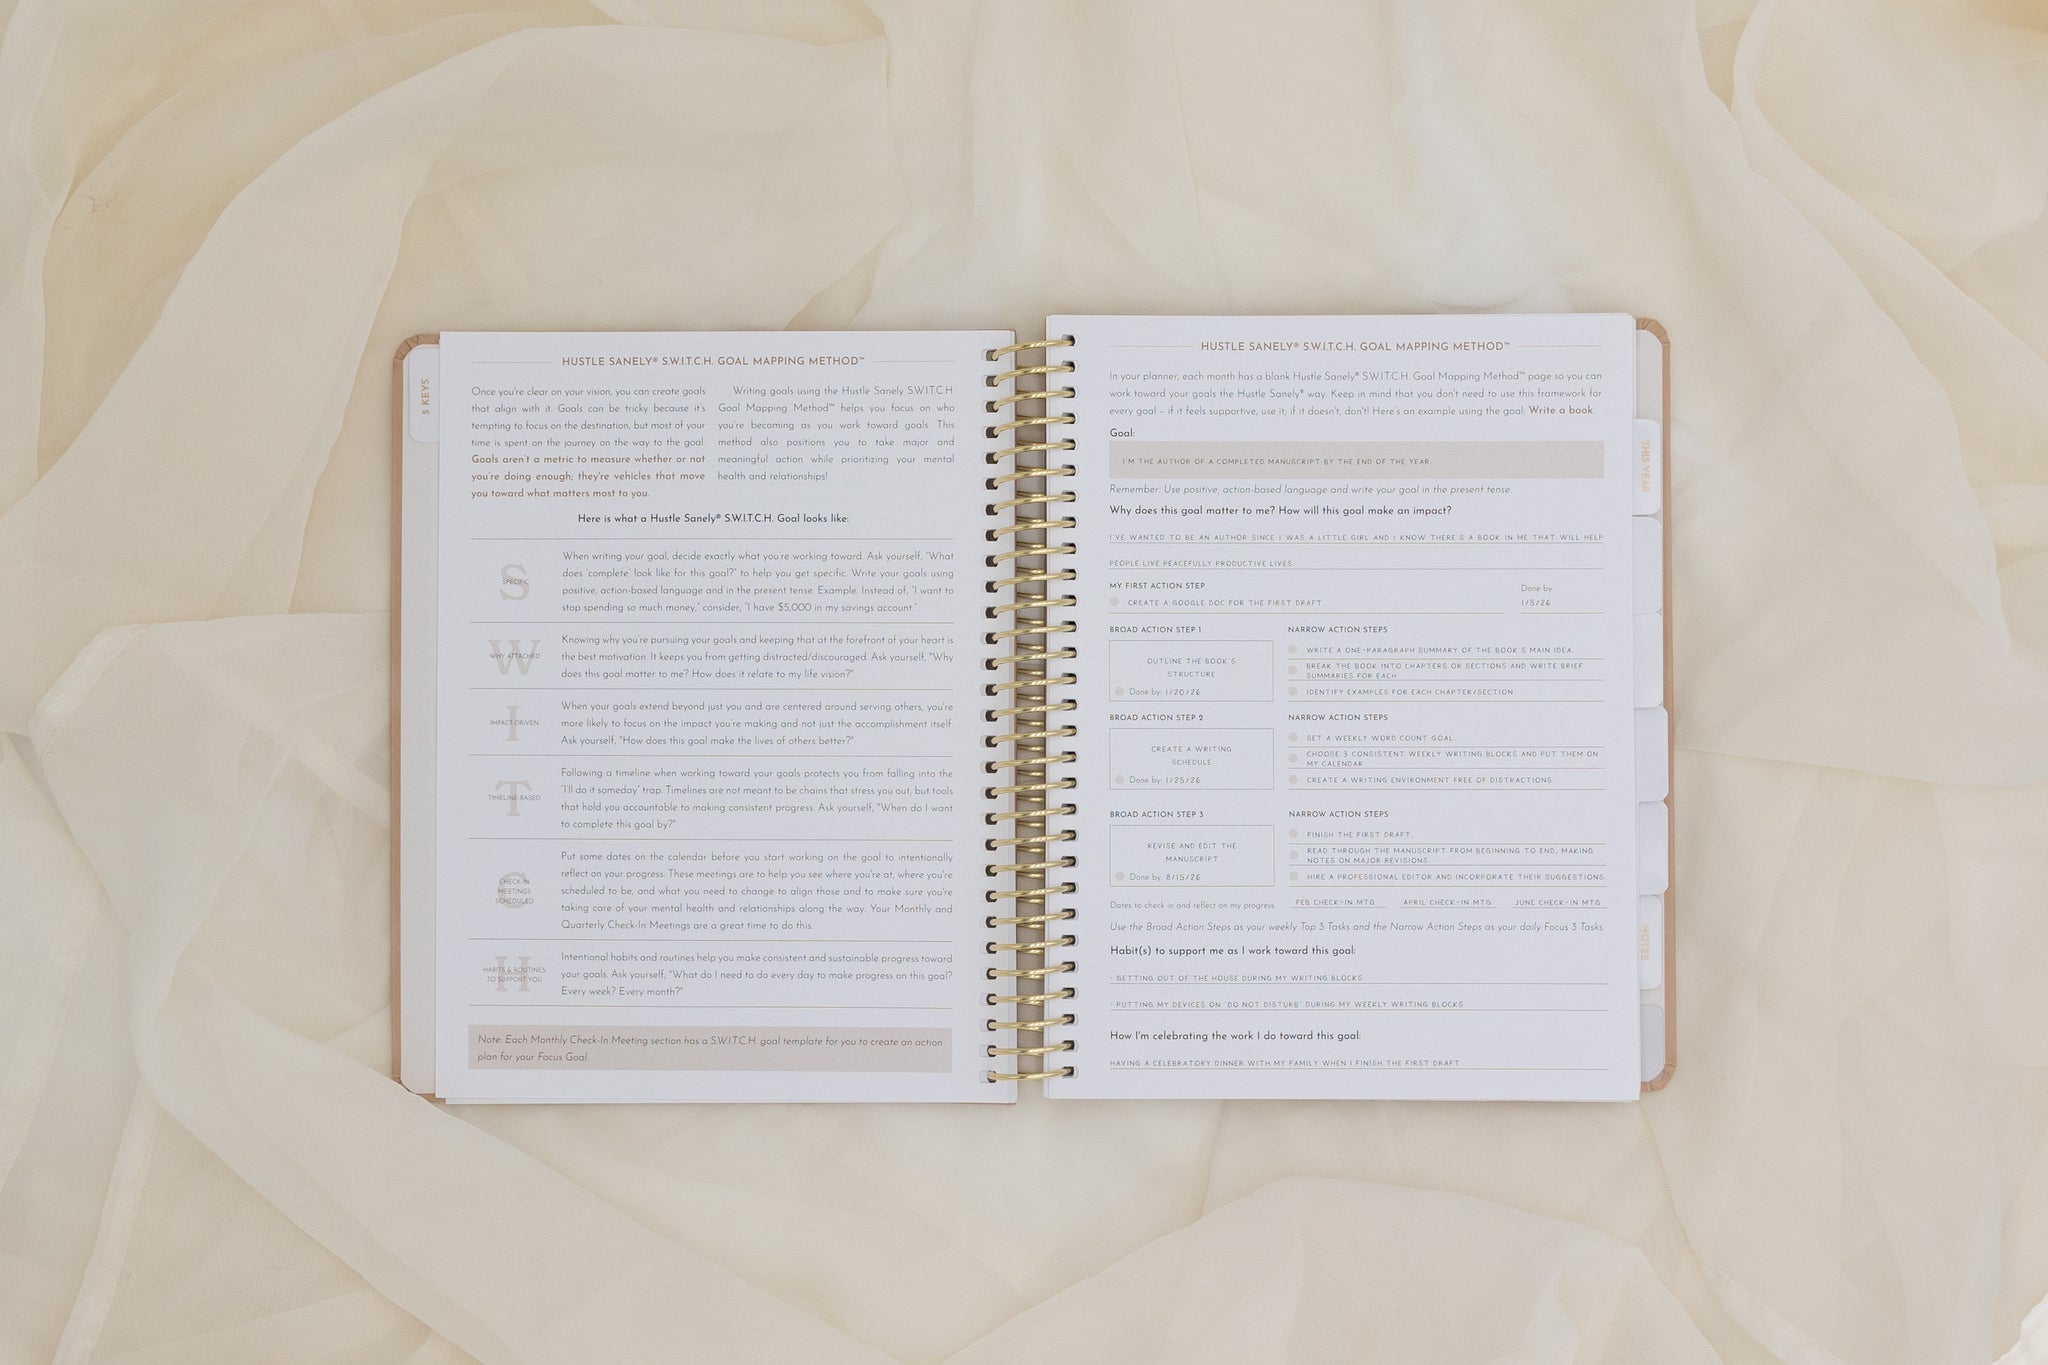 5 KEYS
HUSTLE SANELY® S.W.I.T.C.H. GOAL MAPPING METHOD™
Once you're clear on your vision, you can create goals
that align with it. Goals can be tricky because it's
tempting to focus on the destination, but most of your
time is spent on the journey on the way to the goal.
Goals aren't a metric to measure whether or not
you're doing enough; they're vehicles that move
you toward what matters most to you.
Writing goals using the Hustle Sanely S.W.I.T.C.H.
Goal Mapping Method™ helps you focus on who
you're becoming as you work toward goals. This
method also positions you to take major and
meaningful action while prioritizing your mental
health and relationships!
Here is what a Hustle Sanely® S.W.I.T.C.H. Goal looks like:
S
SPECIFIC
When writing your goal, decide exactly what you're working toward. Ask yourself, "What
does 'complete' look like for this goal?" to help you get specific. Write your goals using
positive, action-based language and in the present tense. Example: Instead of, "I want to
stop spending so much money," consider, "I have $5,000 in my savings account."
W
WHY ATTACHED
Knowing why you're pursuing your goals and keeping that at the forefront of your heart is
the best motivation. It keeps you from getting distracted/discouraged. Ask yourself, "Why
does this goal matter to me? How does it relate to my life vision?"
I
IMPACT-DRIVEN
When your goals extend beyond just you and are centered around serving others, you're
more likely to focus on the impact you're making and not just the accomplishment itself.
Ask yourself, "How does this goal make the lives of others better?"
T
TIMELINE-BASED
Following a timeline when working toward your goals protects you from falling into the
"I'll do it someday" trap. Timelines are not meant to be chains that stress you out, but tools
that hold you accountable to making consistent progress. Ask yourself, "When do I want
to complete this goal by?"
C
CHECK-IN
MEETINGS
SCHEDULED
Put some dates on the calendar before you start working on the goal to intentionally
reflect on your progress. These meetings are to help you see where you're at, where you're
scheduled to be, and what you need to change to align those and to make sure you're
taking care of your mental health and relationships along the way. Your Monthly and
Quarterly Check-In Meetings are a great time to do this.
H
HABITS & ROUTINES
TO SUPPORT YOU
Intentional habits and routines help you make consistent and sustainable progress toward
your goals. Ask yourself, "What do I need to do every day to make progress on this goal?
Every week? Every month?"
Note: Each Monthly Check-In Meeting section has a S.W.I.T.C.H. goal template for you to create an action
plan for your Focus Goal.
HUSTLE SANELY® S.W.I.T.C.H. GOAL MAPPING METHOD™
In your planner, each month has a blank Hustle Sanely® S.W.I.T.C.H. Goal Mapping Method™ page so you can
work toward your goals the Hustle Sanely® way. Keep in mind that you don't need to use this framework for
every goal – if it feels supportive, use it; if it doesn't, don't! Here's an example using the goal: Write a book.
Goal:
I'M THE AUTHOR OF A COMPLETED MANUSCRIPT BY THE END OF THE YEAR
Remember: Use positive, action-based language and write your goal in the present tense.
Why does this goal matter to me? How will this goal make an impact?
I'VE WANTED TO BE AN AUTHOR SINCE I WAS A LITTLE GIRL AND I KNOW THERE'S A BOOK IN ME THAT WILL HELP
PEOPLE LIVE PEACEFULLY PRODUCTIVE LIVES.
MY FIRST ACTION STEP
CREATE A GOOGLE DOC FOR THE FIRST DRAFT
Done by:
1/5/26
BROAD ACTION STEP 1
OUTLINE THE BOOK'S
STRUCTURE
Done by: 1/20/26
NARROW ACTION STEPS
WRITE A ONE-PARAGRAPH SUMMARY OF THE BOOK'S MAIN IDEA.
BREAK THE BOOK INTO CHAPTERS OR SECTIONS AND WRITE BRIEF
SUMMARIES FOR EACH.
IDENTIFY EXAMPLES FOR EACH CHAPTER/SECTION.
BROAD ACTION STEP 2
CREATE A WRITING
SCHEDULE
Done by: 1/25/26
NARROW ACTION STEPS
SET A WEEKLY WORD COUNT GOAL.
CHOOSE 3 CONSISTENT WEEKLY WRITING BLOCKS AND PUT THEM ON
MY CALENDAR.
CREATE A WRITING ENVIRONMENT FREE OF DISTRACTIONS.
BROAD ACTION STEP 3
REVISE AND EDIT THE
MANUSCRIPT
Done by: 8/15/26
NARROW ACTION STEPS
FINISH THE FIRST DRAFT.
READ THROUGH THE MANUSCRIPT FROM BEGINNING TO END, MAKING
NOTES ON MAJOR REVISIONS.
HIRE A PROFESSIONAL EDITOR AND INCORPORATE THEIR SUGGESTIONS.
Dates to check in and reflect on my progress: FEB CHECK-IN MTG APRIL CHECK-IN MTG JUNE CHECK-IN MTG
Use the Broad Action Steps as your weekly Top 3 Tasks and the Narrow Action Steps as your daily Focus 3 Tasks.
Habit(s) to support me as I work toward this goal:
• GETTING OUT OF THE HOUSE DURING MY WRITING BLOCKS
• PUTTING MY DEVICES ON "DO NOT DISTURB" DURING MY WEEKLY WRITING BLOCKS
How I'm celebrating the work I do toward this goal:
HAVING A CELEBRATORY DINNER WITH MY FAMILY WHEN I FINISH THE FIRST DRAFT
THIS YEAR
NOTES